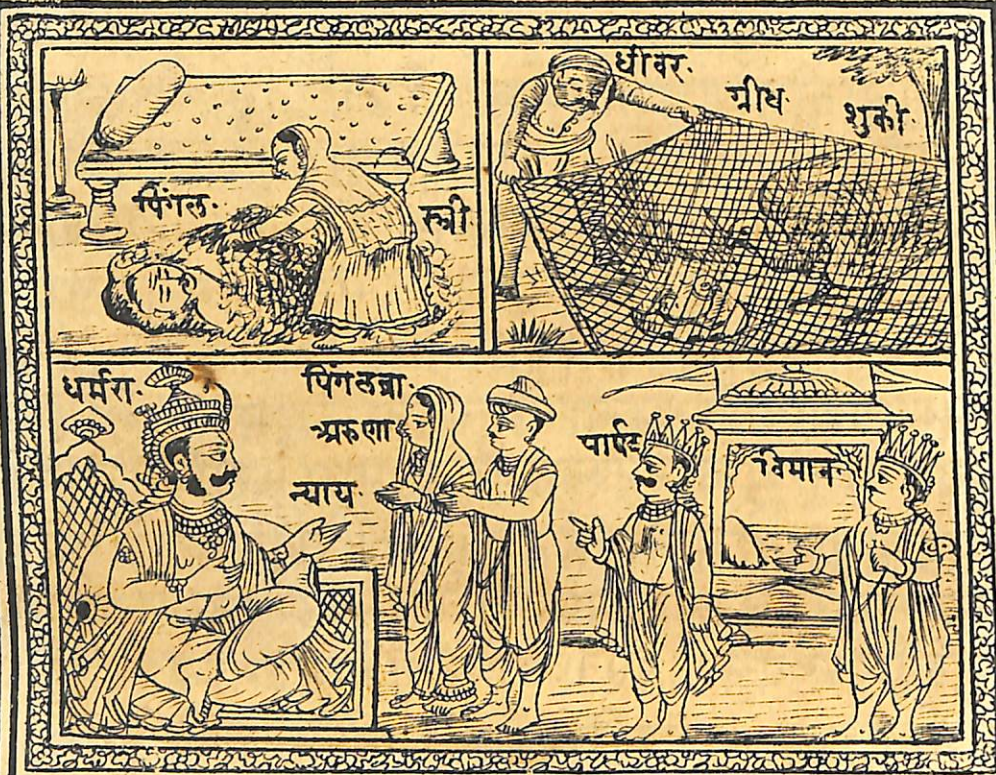 पिंगल·
स्त्री
धीवर·
ग्रीध·
शुकी·
धर्मरा·
पिंगलब्रा·
अरुणा
न्याय·
पार्षद
विमान·